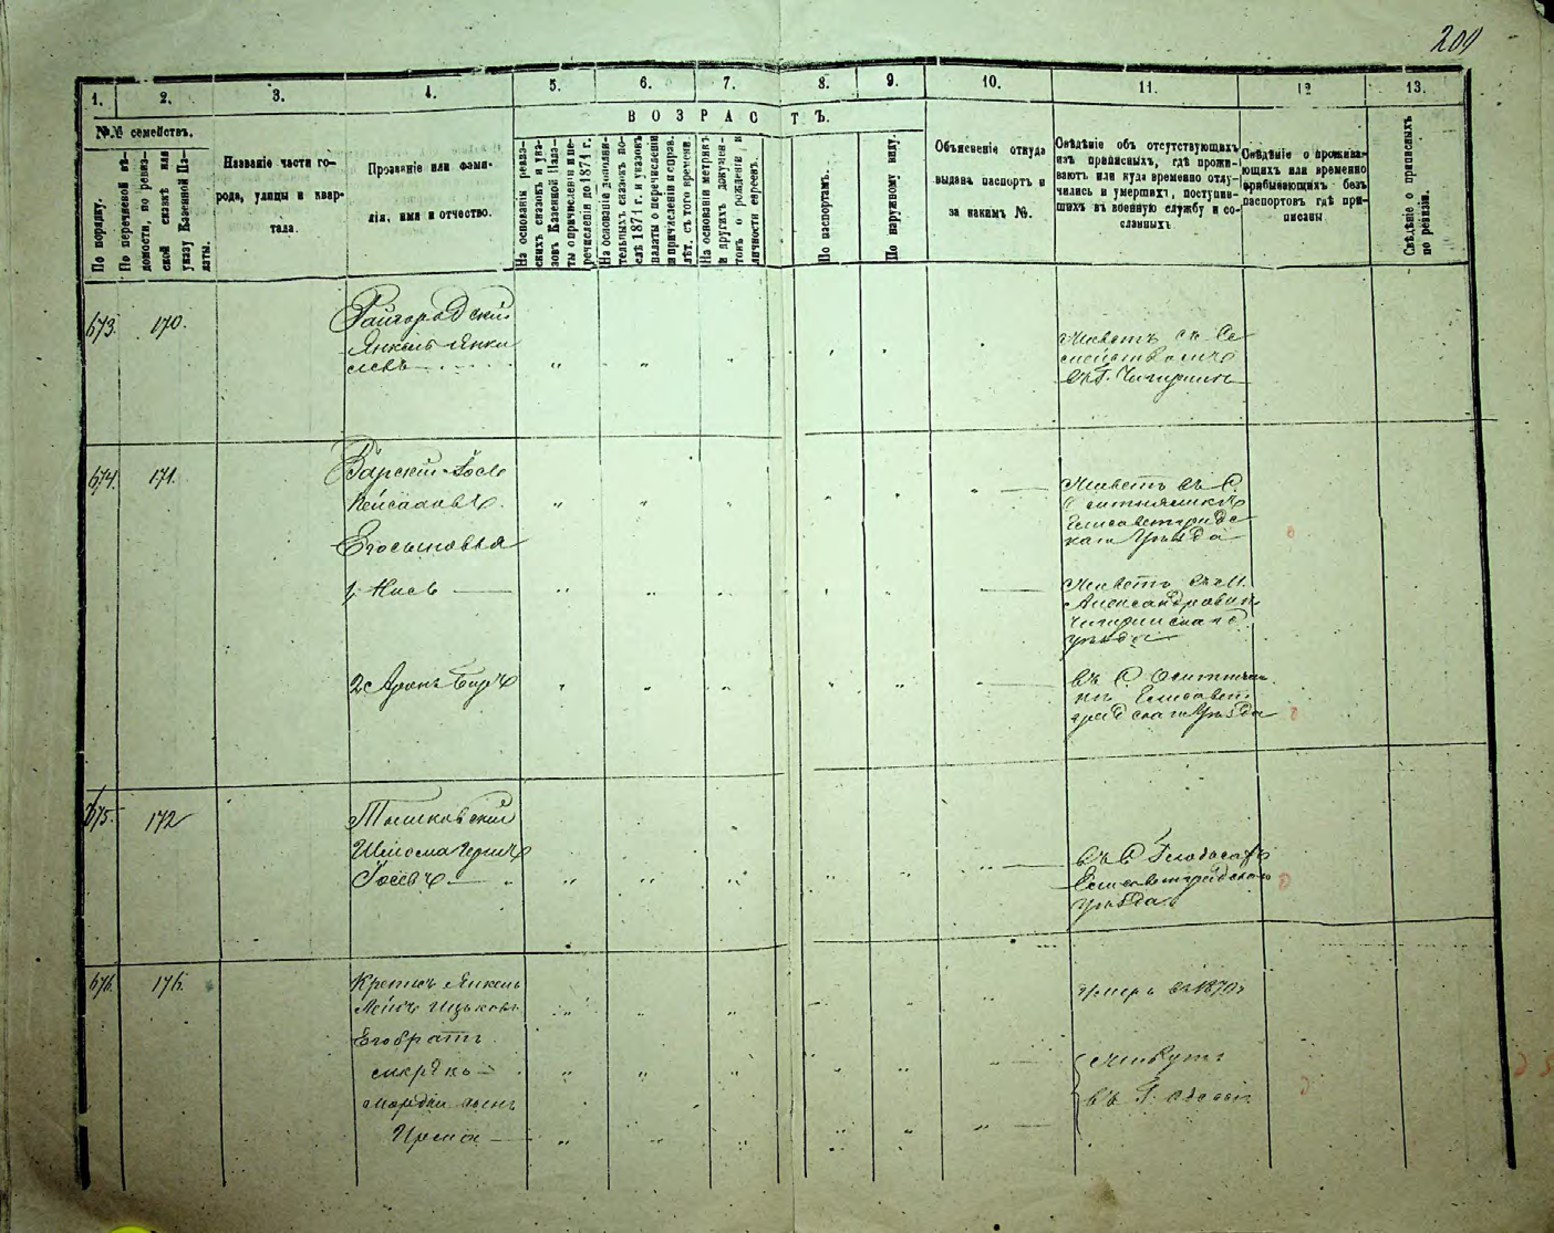 209
1.
2.
3.
4.
5.
6.
7.
8.
9.
10.
11.
12
13.
№№ семействъ.
В О З Р А С Т Ъ.
По порядку.
По перечневой вѣ-
домости, по ревиз-
ской сказкѣ или
указу Казенной Па-
латы.
Названіе части го-
рода, улицы и квар-
тала.
Прозваніе или фами-
лія, имя и отчество.
На основаніи ревиз-
скихъ сказокъ и ука-
зовъ Казенной Пала-
ты о причисленіи и пе-
речисленіи до 1871 г.
На основаніи дополни-
тельныхъ сказокъ по-
слѣ 1871 г. и указовъ
палаты о перечисленіи
и причисленіи и справ.
лѣт. съ того времени.
На основаніи метрикъ
и другихъ докумен-
товъ о рожденіи и
личности евреевъ.
По паспортамъ.
По наружному виду.
Объясненіе откуда
выданъ паспортъ и
за какимъ №.
Свѣдѣніе объ отсутствующихъ
изъ приписныхъ, гдѣ прожи-
ваютъ или куда временно отлу-
чились и умершихъ, поступив-
шихъ въ военную службу и со-
сланныхъ
Свѣдѣніе о прожива-
ющихъ или временно
прибывающихъ безъ
паспортовъ гдѣ при-
писаны
Свѣдѣніе о приписныхъ
по ревизіи.
673. 170.
Райгородскій
Янкель Янке
левъ
Живетъ съ Се
мействомъ
въ Г. Чигиринѣ
674. 171.
Зарскій
Его сыновья
Живетъ въ С.
Елисаветградс
каго Уѣзда
1, Нисъ
Живетъ въ М.
Александровкѣ
Чигиринскаго
уѣзда
2 Аронъ Беръ
въ С.
Елисавет
градскаго Уѣзда
675. 172
Тышковскій
Шлиома
въ С.
Елисаветградскаго
уѣзда.
676. 176.
Янкель
Лейбъ Ицьковъ
Умеръ въ 1870г
Его братъ
Живутъ
сынъ
въ Г. Одессѣ